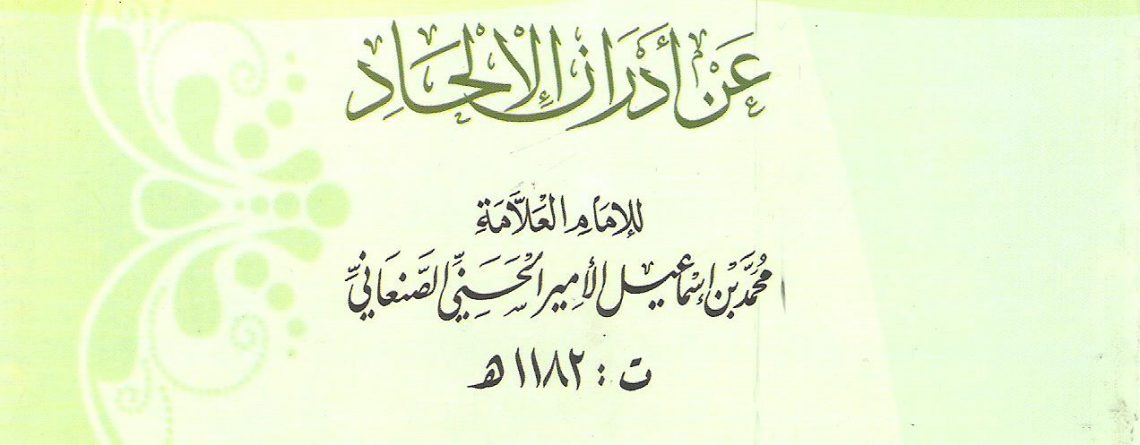 عَنْ أَدْرَانِ الْإِلْحَادِ
لِلإمَامِ العَلَّامَةِ
مُحَمَّد بْن إسْمَاعِيل الأمِير الحَسَنِيّ الصَّنعَانِيّ
ت : ١١٨٢ هـ